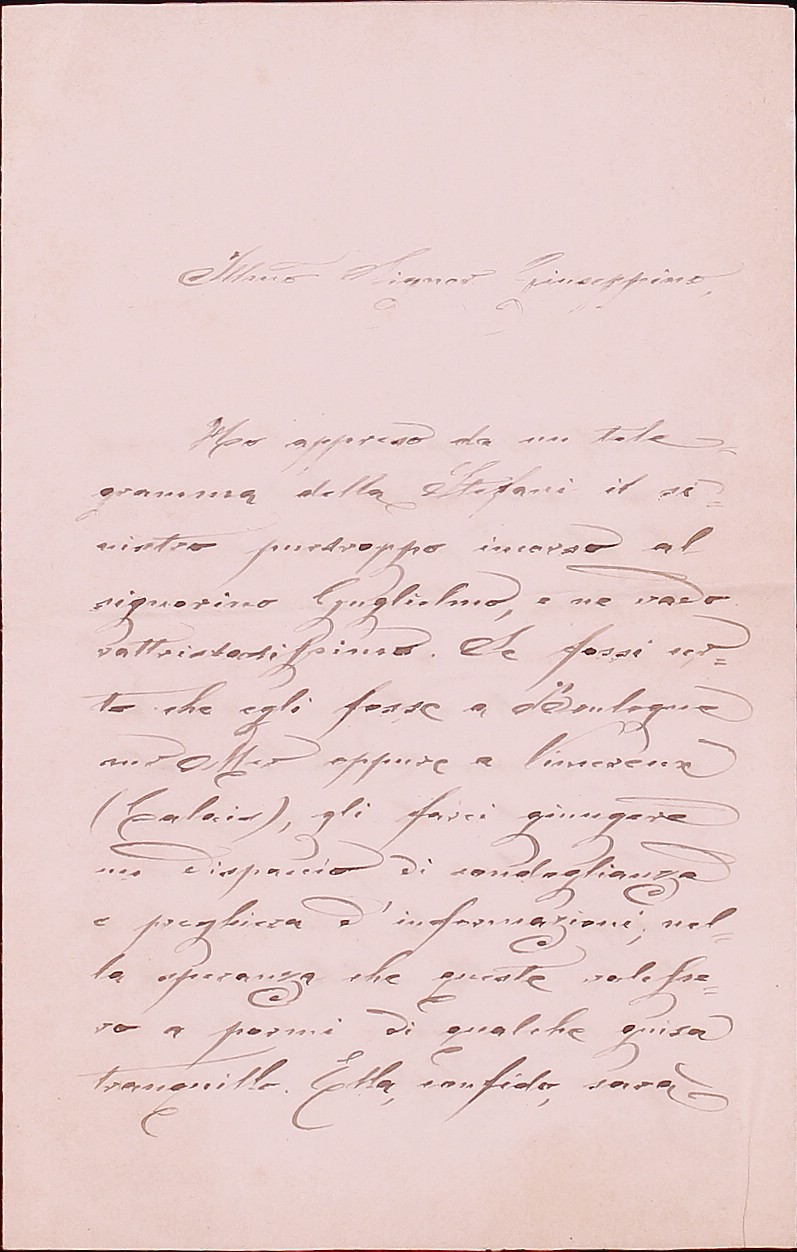 Illmo Signor Giuseppino,
Ho appreso da un tele=
gramma della Stefani il si=
nistro purtroppo incorso al
signorino Guglielmo, e ne vado
rattristatissimo. Se fossi cer=
to che egli fosse a Boulogne
sur Mer oppure a Vimereux
(Calais), gli farei giungere
un dispaccio di condoglianza
e preghiera d'informazioni, nel=
la speranza che queste valesse=
ro a pormi di qualche guisa
tranquillo. Ella, confido, sarà